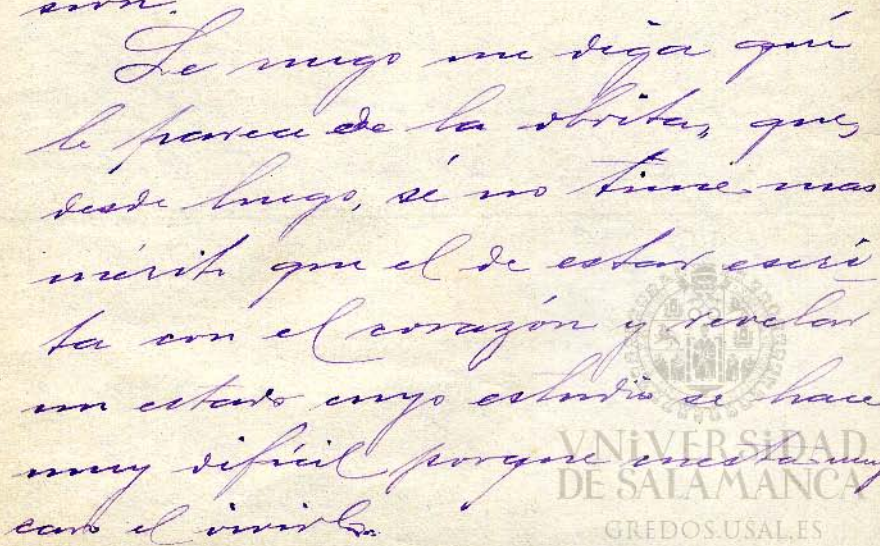 sión.
Le ruego me diga qué
le parece de la obrita, que,
desde luego, sé no tiene mas
mérito que el de estar escri
ta con el corazón y revelar
un estado cuyo estudio se hace
muy difícil porque cuesta muy
caro el vivirlo.
VNiVERSiDAD
DE SALAMANCA
GREDOS.USAL.ES